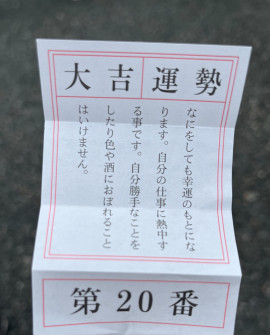 大吉運勢
なにをしても幸運のもとにな
ります。自分の仕事に熱中す
る事です。自分勝手なことを
したり色や酒におぼれること
はいけません。
第20番